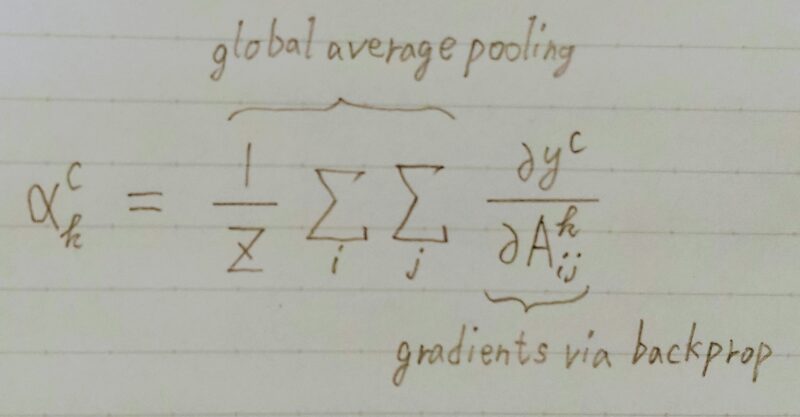 global average pooling
α_k^c = 1/Z ∑_i ∑_j ∂y^c/∂A_ij^k
gradients via backprop